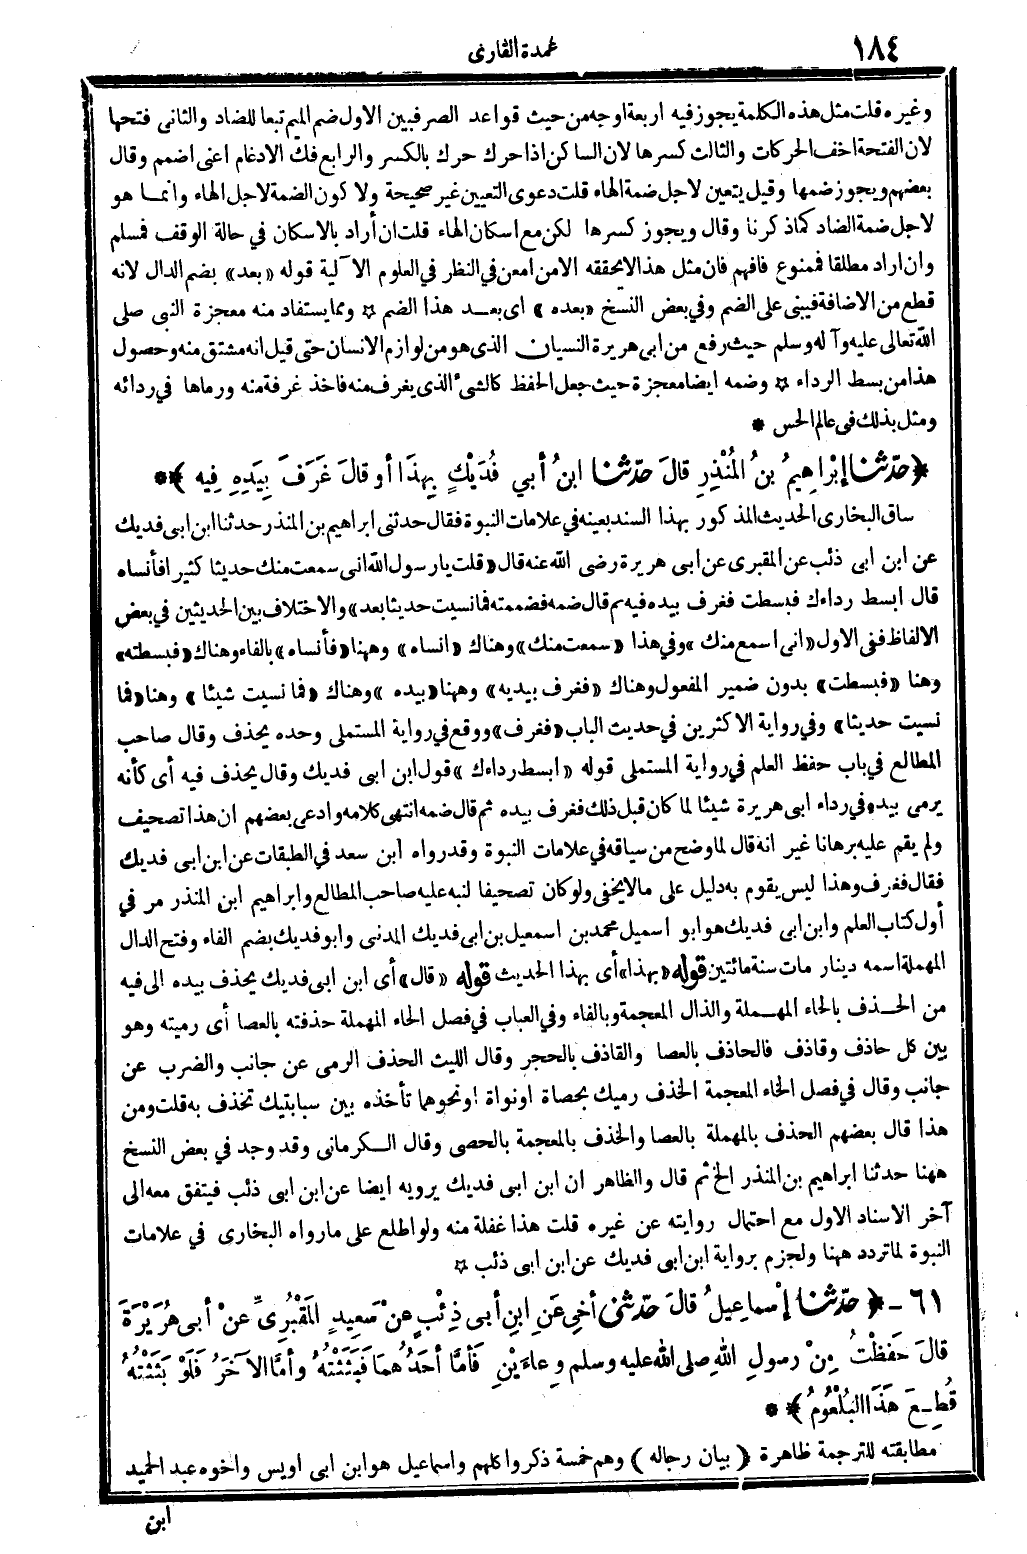 ١٨٤
عمدة القارى
وغيره قلت مثل هذه الكلمة يجوز فيه اربعة اوجه من حيث قواعد الصرفيين الاول ضم الميم تبعا للضاد والثانى فتحها
لان الفتحة اخف الحركات والثالث كسرها لان الساكن اذا حرك حرك بالكسر والرابع فك الادغام اعنى اضمم وقال
بعضهم ويجوز ضمها وقيل يتعين لاجل ضمة الهاء قلت دعوى التعيين غير صحيحة ولا كون الضمة لاجل الهاء وانما هو
لاجل ضمة الضاد كما ذكرنا وقال ويجوز كسرها لكن مع اسكان الهاء قلت ان أراد بالاسكان في حالة الوقف فمسلم
وان اراد مطلقا فممنوع فافهم فان مثل هذا لا يحققه الا من امعن في النظر في العلوم الآلية قوله «بعد» بضم الدال لانه
قطع من الاضافة فيبنى على الضم وفي بعض النسخ «بعده» اى بعد هذا الضم ۞ ومما يستفاد منه معجزة النبى صلى
الله تعالى عليه وآله وسلم حيث رفع من ابى هريرة النسيان الذى هو من لوازم الانسان حتى قيل انه مشتق منه وحصول
هذا من بسط الرداء ۞ وضمه ايضا معجزة حيث جعل الحفظ كالشىء الذى يغرف منه فاخذ غرفة منه ورماها في ردائه
ومثل بذلك فى عالم الحس *
﴿حدّثنا إبْراهِيمُ بنُ المُنْذِرِ قالَ حدّثنا ابنُ أبي فُدَيْكٍ بِهذَا أو قالَ غَرَفَ بِيَدِهِ فِيهِ﴾*
ساق البخارى الحديث المذكور بهذا السند بعينه في علامات النبوة فقال حدثنى ابراهيم بن المنذر حدثنا ابن ابى فديك
عن ابن ابى ذئب عن المقبرى عن ابى هريرة رضى الله عنه قال «قلت يارسول الله انى سمعت منك حديثا كثيرا فأنساه
قال ابسط رداءك فبسطت فغرف بيده فيه ثم قال ضمه فضممته فما نسيت حديثا بعد» والاختلاف بين الحديثين في بعض
الالفاظ ففى الاول «انى اسمع منك» وفي هذا «سمعت منك» وهناك «انساه» وههنا «فأنساه» بالفاء وهناك «فبسطته»
وهنا «فبسطت» بدون ضمير المفعول وهناك «فغرف بيديه» وههنا «بيده» وهناك «فما نسيت شيئا» وهنا «فما
نسيت حديثا» وفي رواية الاكثرين في حديث الباب «فغرف» ووقع في رواية المستملى وحده يحذف وقال صاحب
المطالع في باب حفظ العلم في رواية المستملى قوله «ابسط رداءك» قول ابن ابى فديك وقال يحذف فيه أى كأنه
يرمى بيده في رداء ابى هريرة شيئا لما كان قبل ذلك فغرف بيده ثم قال ضمه انتهى كلامه وادعى بعضهم ان هذا تصحيف
ولم يقم عليه برهانا غير انه قال لما وضح من سياقه في علامات النبوة وقد رواه ابن سعد في الطبقات عن ابن ابى فديك
فقال فغرف وهذا ليس يقوم به دليل على مالا يخفى ولو كان تصحيفا لنبه عليه صاحب المطالع وابراهيم ابن المنذر مر في
أول كتاب العلم وابن ابى فديك هو ابو اسميل محمد بن اسمعيل بن ابى فديك المدنى وابو فديك بضم الفاء وفتح الدال
المهملة اسمه دينار مات سنة مائتين قوله «بهذا» أى بهذا الحديث قوله «قال» أى ابن ابى فديك يحذف بيده الى فيه
من الحذف بالحاء المهملة والذال المعجمة وبالفاء وفي العباب في فصل الحاء المهملة حذفته بالعصا أى رميته وهو
بين كل حاذف وقاذف فالحاذف بالعصا والقاذف بالحجر وقال الليث الحذف الرمى عن جانب والضرب عن
جانب وقال في فصل الخاء المعجمة الخذف رميك بحصاة اونواة اونحوهما تأخذه بين سبابتيك تخذف به قلت ومن
هذا قال بعضهم الحذف بالمهملة بالعصا والخذف بالمعجمة بالحصى وقال الكرمانى وقد وجد في بعض النسخ
ههنا حدثنا ابراهيم بن المنذر الخ ثم قال والظاهر ان ابن ابى فديك يرويه ايضا عن ابن ابى ذئب فيتفق معه الى
آخر الاسناد الاول مع احتمال روايته عن غيره قلت هذا غفلة منه ولو اطلع على مارواه البخارى في علامات
النبوة لما تردد ههنا ولجزم برواية ابن ابى فديك عن ابن ابى ذئب ۞
٦١ - ﴿حدّثنا إسْماعِيلُ قالَ حدّثنى أخِى عَنِ ابنِ أبى ذِئْبٍ عنْ سَعِيدٍ المَقْبُرِىِّ عنْ أبى هُرَيْرَةَ
قالَ حَفِظْتُ مِنْ رسولِ اللهِ صلى الله عليه وسلم وِعاءَيْنِ فَأمَّا أحَدُهُما فَبَثَثْتُهُ وأمَّا الآخَرُ فَلَوْ بَثَثْتُهُ
قُطِعَ هَذَا البُلْعُومُ﴾ * *
مطابقته للترجمة ظاهرة (بيان رجاله) وهم خمسة ذكروا كلهم واسماعيل هو ابن ابى اويس واخوه عبد الحميد
ابن